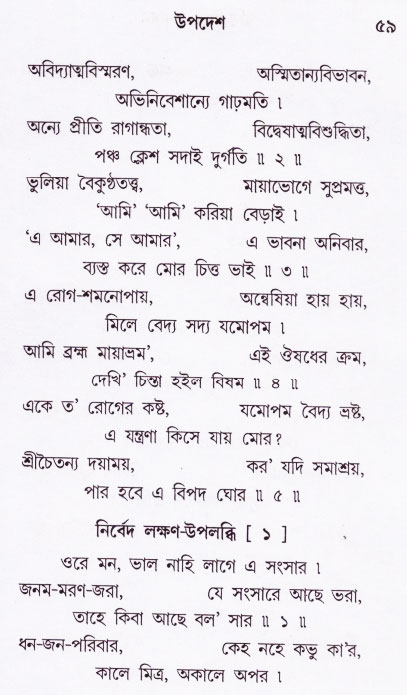 উপদেশ ৫৯
অবিদ্যাত্মবিস্মরণ, অস্মিতান্যবিভাবন,
অভিনিবেশান্যে গাঢ়মতি ।
অন্যে প্রীতি রাগান্ধতা, বিদ্বেষাত্মবিশুদ্ধিতা,
পঞ্চ ক্লেশ সদাই দুর্গতি ॥ ২ ॥
ভুলিয়া বৈকুণ্ঠতত্ত্ব, মায়াভোগে সুপ্রমত্ত,
‘আমি’ ‘আমি’ করিয়া বেড়াই ।
‘এ আমার, সে আমার’, এ ভাবনা অনিবার,
ব্যস্ত করে মোর চিত্ত ভাই ॥ ৩ ॥
এ রোগ-শমনোপায়, অন্বেষিয়া হায় হায়,
মিলে বৈদ্য সদ্য যমোপম ।
আমি ব্রহ্ম মায়াভ্রম’, এই ঔষধের ক্রম,
দেখি’ চিন্তা হইল বিষম ॥ ৪ ॥
একে ত’ রোগের কষ্ট, যমোপম বৈদ্য ভ্রষ্ট,
এ যন্ত্রণা কিসে যায় মোর?
শ্রীচৈতন্য দয়াময়, কর’ যদি সমাশ্রয়,
পার হবে এ বিপদ ঘোর ॥ ৫ ॥
নির্বেদ লক্ষণ-উপলব্ধি [ ১ ]
ওরে মন, ভাল নাহি লাগে এ সংসার ।
জনম-মরণ-জরা, যে সংসারে আছে ভরা,
তাহে কিবা আছে বল’ সার ॥ ১ ॥
ধন-জন-পরিবার, কেহ নহে কভু কা’র,
কালে মিত্র, অকালে অপর ।